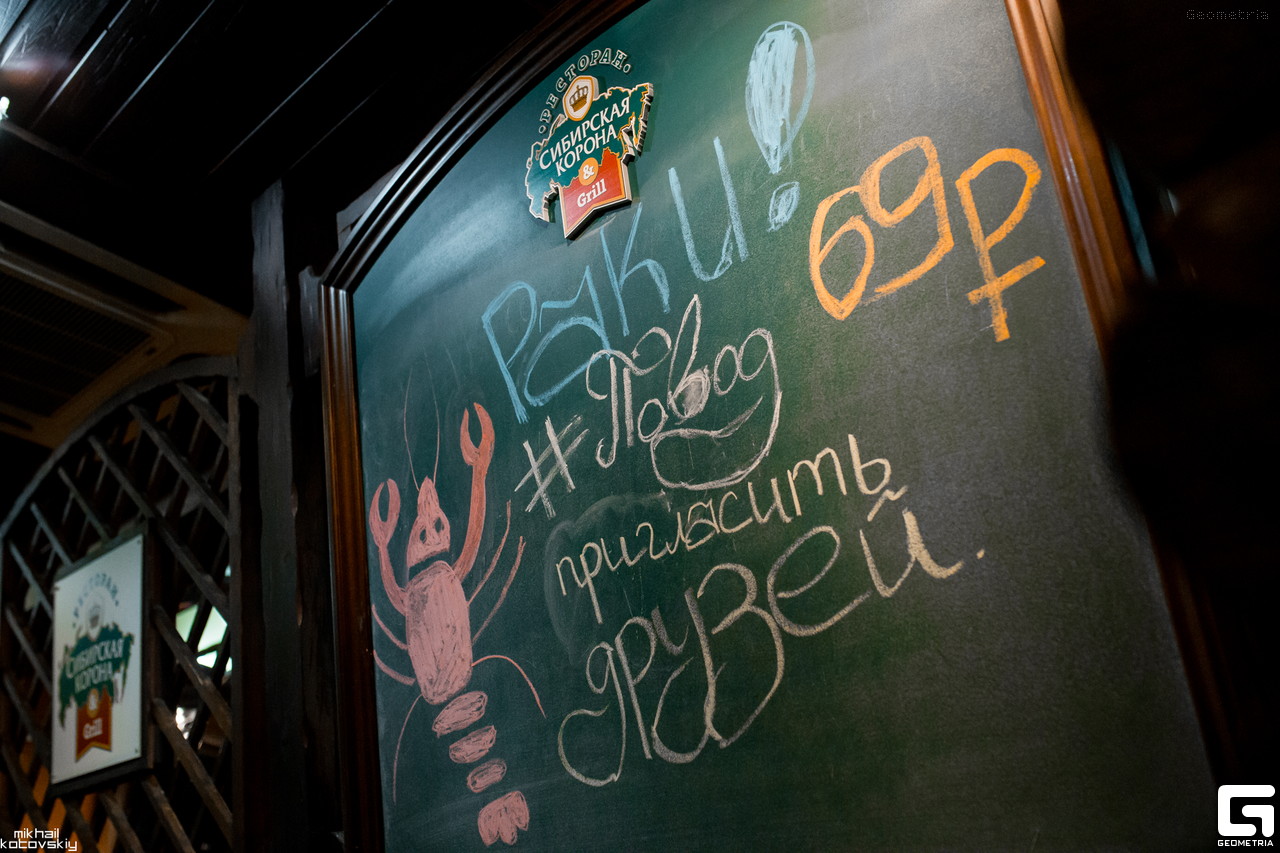 Geometria
РЕСТОРАН
СИБИРСКАЯ
КОРОНА
&
Grill
Раки!
69₽
#Повод
пригласить
друзей.
РЕСТОРАН
СИБИРСКАЯ
КОРОНА
&
Grill
mikhail
kotovskiy
G
GEOMETRIA